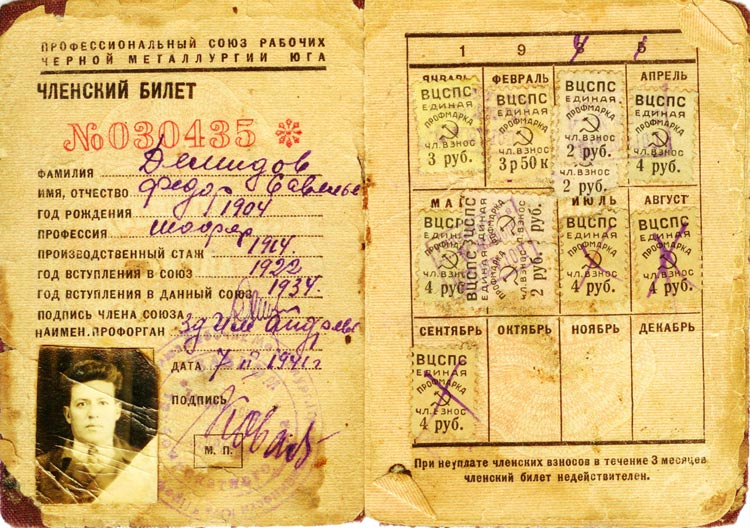 ПРОФЕССИОНАЛЬНЫЙ СОЮЗ РАБОЧИХ
ЧЕРНОЙ МЕТАЛЛУРГИИ ЮГА
ЧЛЕНСКИЙ БИЛЕТ
№030435
ФАМИЛИЯ Демидов
ИМЯ, ОТЧЕСТВО Федор Савелье
ГОД РОЖДЕНИЯ 1904
ПРОФЕССИЯ шофер
ПРОИЗВОДСТВЕННЫЙ СТАЖ 1914
ГОД ВСТУПЛЕНИЯ В СОЮЗ 1922
ГОД ВСТУПЛЕНИЯ В ДАННЫЙ СОЮЗ 1934
ПОДПИСЬ ЧЛЕНА СОЮЗА
НАИМЕН. ПРОФОРГАН
ДАТА 7 1941г
ПОДПИСЬ
М. П.
1 9 4
ЯНВАРЬ ФЕВРАЛЬ АПРЕЛЬ
ВЦСПС ЕДИНАЯ ПРОФМАРКА ЧЛ. ВЗНОС 3 руб.
ВЦСПС ЕДИНАЯ ПРОФМАРКА ЧЛ. ВЗНОС 3 р 50 к
ВЦСПС ЕДИНАЯ ПРОФМАРКА ЧЛ. ВЗНОС 2 руб.
ВЦСПС ЕДИНАЯ ПРОФМАРКА ЧЛ. ВЗНОС 4 руб.
МАЙ ИЮЛЬ АВГУСТ
ВЦСПС ЕДИНАЯ ПРОФМАРКА ЧЛ. ВЗНОС 4 руб.
ВЦСПС ЕДИНАЯ ПРОФМАРКА ЧЛ. ВЗНОС 2 руб.
2 руб.
ВЦСПС ЕДИНАЯ ПРОФМАРКА ЧЛ. ВЗНОС 4 руб.
ВЦСПС ЕДИНАЯ ПРОФМАРКА ЧЛ. ВЗНОС 4 руб.
СЕНТЯБРЬ ОКТЯБРЬ НОЯБРЬ ДЕКАБРЬ
ВЦСПС ЕДИНАЯ ПРОФМАРКА ЧЛ. ВЗНОС 4 руб.
При неуплате членских взносов в течение 3 месяцев
членский билет недействителен.